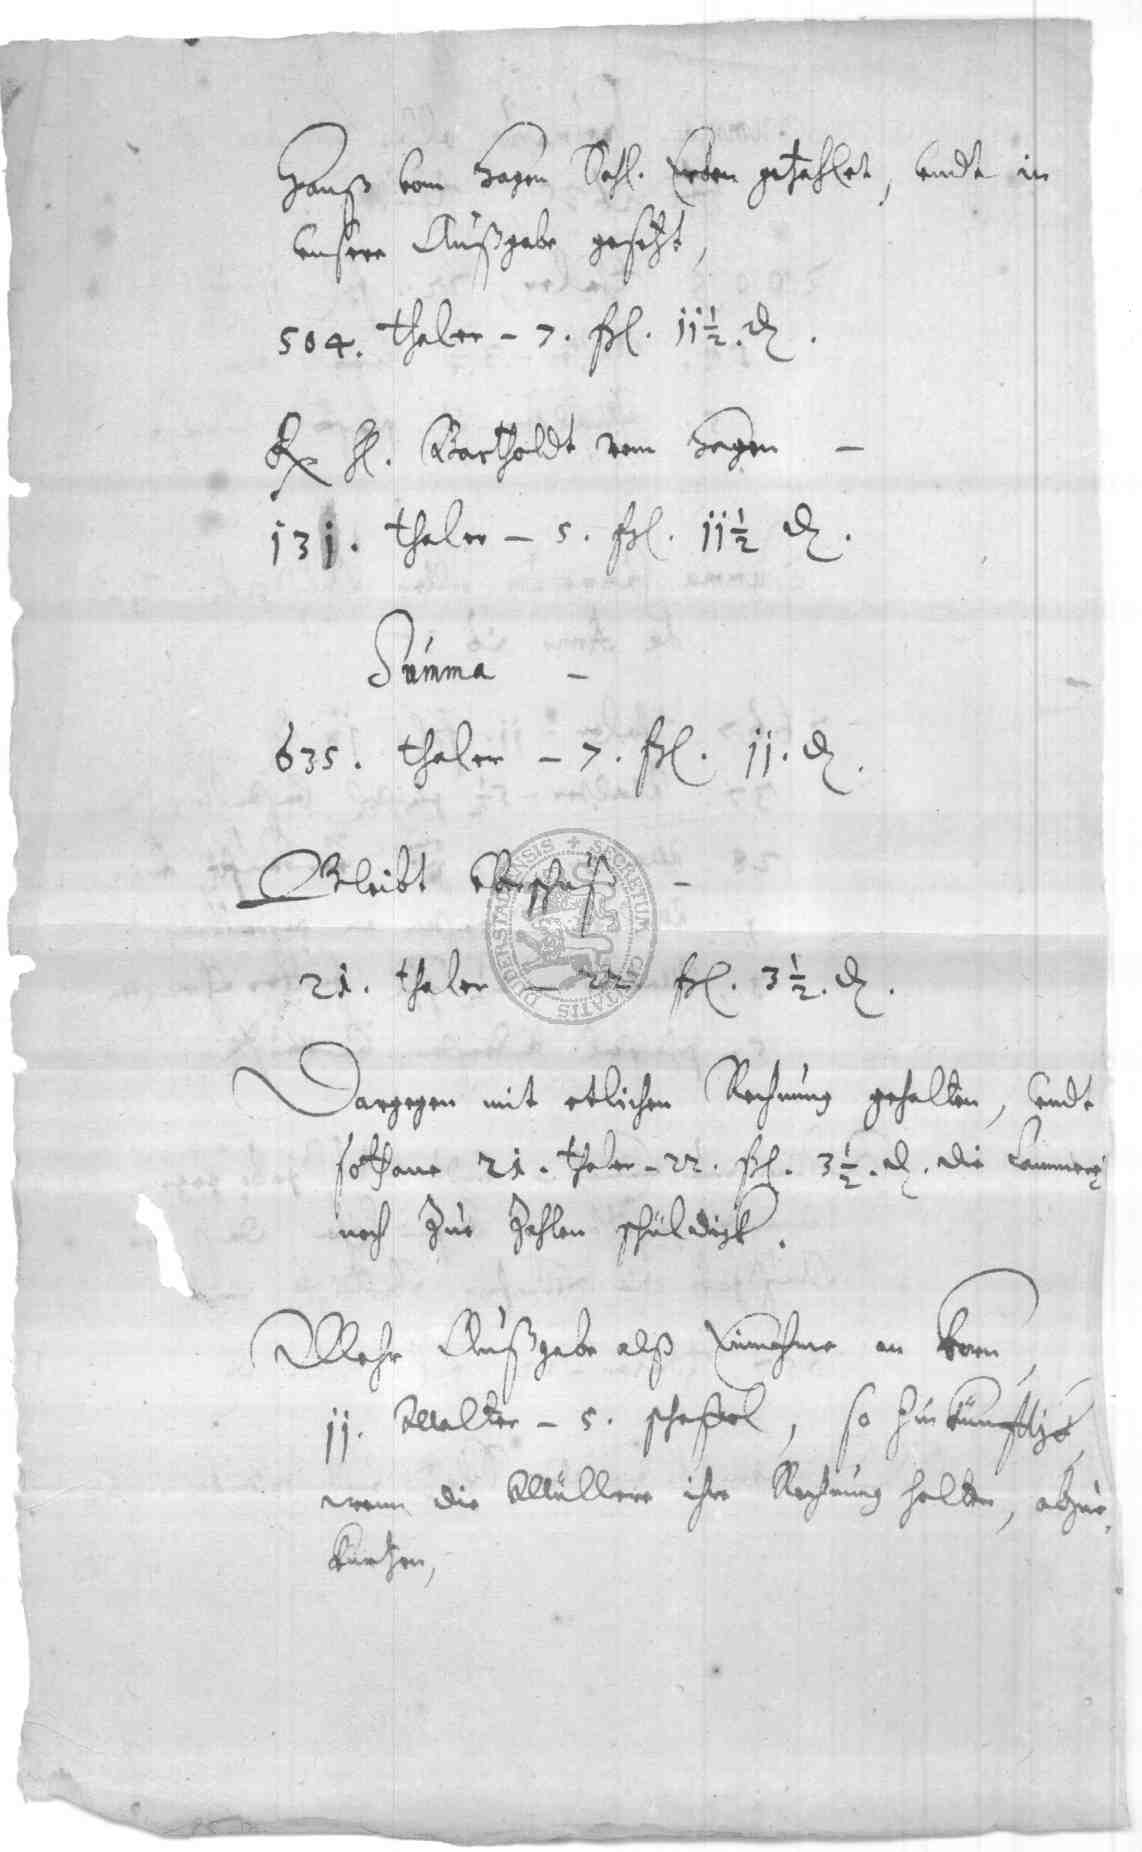 Hanß vom Hagen Sehl. Erben gezahlet, undt in
unsere Außgabe gesetzt,
504. thaler - 7. ßl. jj½. ₰.
H. Bartholdt vom Hagen -
j3j. thaler - 5. ßl. jj½ ₰.
Summa -
635. thaler - 7. ßl. jj. ₰.
Bleibt uberschuß -
2j. thaler - 22. ßl. 3½. ₰.
Dargegen mit etlichen Rechnung gehalten, undt
sothane 2j. thaler - 22. ßl. 3½. ₰. die Cammerey
noch zue zahlen schüldigk.
Mehr Außgabe alß Einnahme an Korn,
jj. Malter - 5. scheffel, so zue künfftigk,
wenn die Müllere ihre Rechnung halten, abzue
kurtzen,
SECRETUM CIVITATIS DUDERSTADENSIS